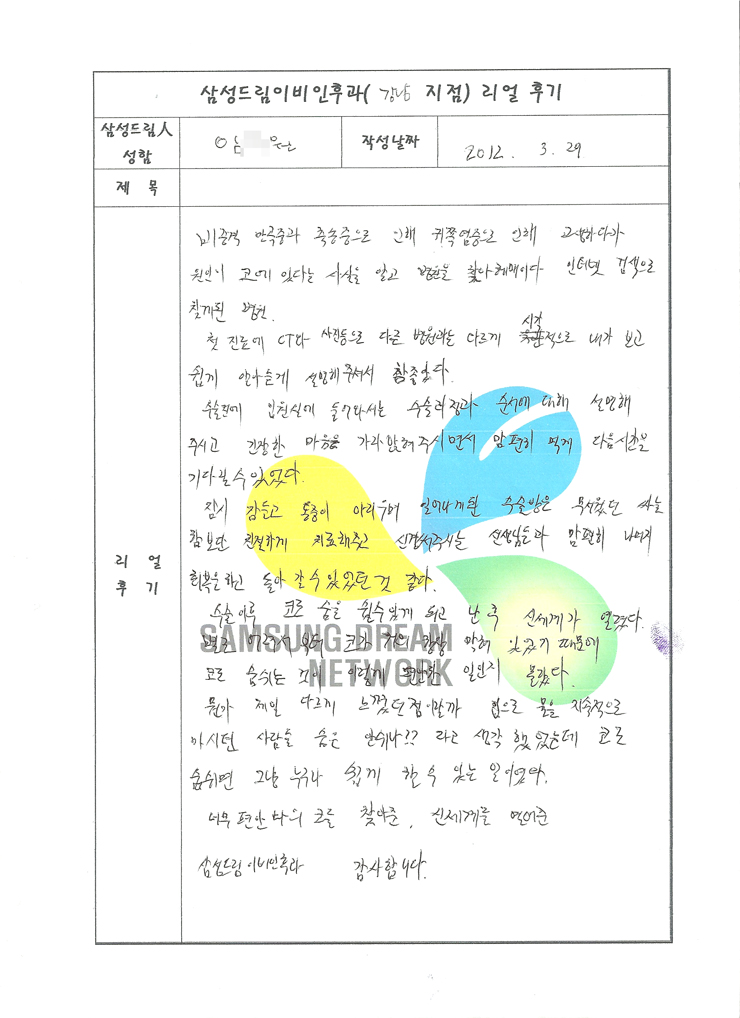 삼성드림이비인후과( 강남 지점) 리얼 후기
삼성드림人
성함
작성날짜
2012. 3. 29
제 목
리 얼
후 기
비중격 만곡증과 축농증으로 인해 귀쪽염증으로 인해 고생하다가
원인이 코에 있다는 사실을 알고 병원을 찾아 헤매이다 인터넷 검색으로
찾게된 병원.
첫 진료에 CT와 사진등으로 다른 병원과는 다르게 시각적으로 내가 보고
쉽게 알아듣게 설명해주셔서 참좋았다.
수술전에 입원실에 들어와서는 수술과정과 순서에 대해 설명해
주시고 긴장한 마음을 가라앉혀주시면서 맘 편히 먹게 다음시간을
기다릴수 있었다.
잠시 잠들고 통증이 아리우며 일어나게된 수술방은 무서웠던
보단 친절하게 치료해주고 신경써주시는 선생님들과 맘편히 나머지
회복을하고 돌아 갈 수 있었던 것 같다.
수술이후 코로 숨을 쉴수있게 되고 난 후 신세계가 열렸다.
어려서부터 코가 거의 항상 막혀 있었기 때문에
코로 숨쉬는 것이 이렇게 편안한 일인지 몰랐다.
뭔가 제일 다르게 느꼈던점이랄까 입으로 물을 지속적으로
마시던 사람들 숨은 안쉬나?? 라고 생각 했었는데 코로
숨쉬면 그냥 누구나 쉽게 할 수 있는 일이였다.
너무 편안 나의 코를 찾아준, 신세계를 열어준
삼성드림이비인후과 감사합니다.
SAMSUNG DREAM
NETWORK